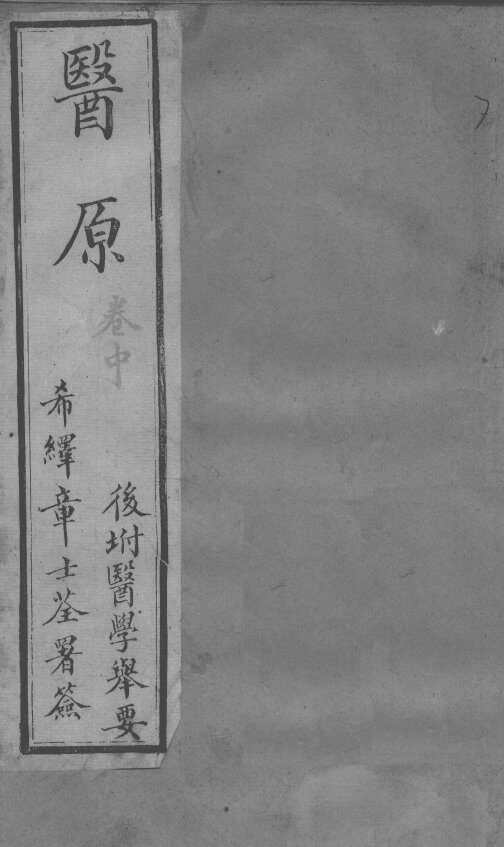 醫原
卷中
後坿醫學舉要
希繹章士荃署簽